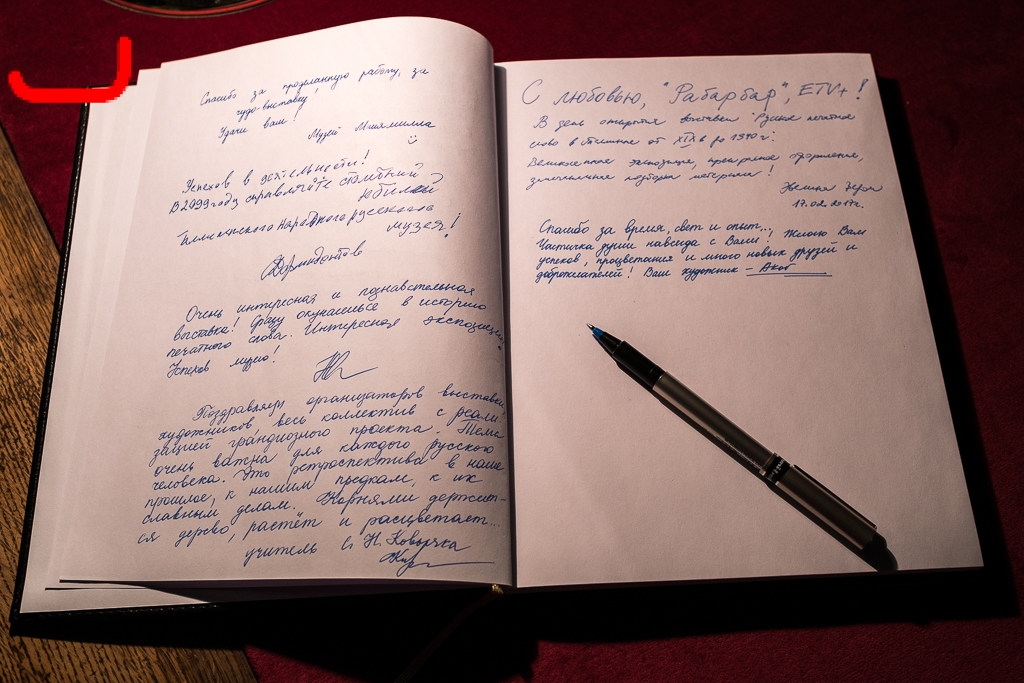 Спасибо за проделанную работу, за
чудо-выставку!
Удачи вам!
Музей Миямилла
Успехов в деятельности!
В 2099 году справляйте столетний
юбилей
Таллинского народного русского
музея!
Очень интересная и познавательная
выставка! Сразу окунаешься в историю
печатного слова. Интересная экспозиция.
Успехов музею!
Поздравляем организаторов выставки,
художников весь коллектив с реали-
зацией грандиозного проекта. Тема
очень важна для каждого русского
человека. Это ретроспектива в наше
прошлое, к нашим предкам, к их
славным делам. Корнями держит-
ся дерево, растёт и расцветает...
учитель Н. Коворчка
С любовью, "Рабарбар", ETV+!
В день открытия выставки "Русское печатное
слово в Эстонии от XIX в до 1940 г.
Великолепная экспозиция, прекрасное оформление,
замечательная подборка материала!
17.02.2017г.
Спасибо за время, свет и опыт...
Частичка души навсегда с Вами! Желаю Вам
успехов, процветания и много новых друзей и
доброжелателей! Ваш художник - Акоб